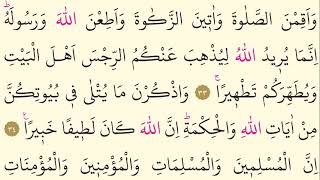 وَاَقِمْنَ الصَّلٰوةَ وَاٰت۪ينَ الزَّكٰوةَ وَاَطِعْنَ اللّٰهَ وَرَسُولَهُۜ
اِنَّمَا يُر۪يدُ اللّٰهُ لِيُذْهِبَ عَنْكُمُ الرِّجْسَ اَهْلَ الْبَيْتِ
وَيُطَهِّرَكُمْ تَطْه۪يراًۚ ﴿٣٣﴾ وَاذْكُرْنَ مَا يُتْلٰى ف۪ي بُيُوتِكُنَّ
مِنْ اٰيَاتِ اللّٰهِ وَالْحِكْمَةِۜ اِنَّ اللّٰهَ كَانَ لَط۪يفاً خَب۪يراً۟ ﴿٣٤﴾
اِنَّ الْمُسْلِم۪ينَ وَالْمُسْلِمَاتِ وَالْمُؤْمِن۪ينَ وَالْمُؤْمِنَاتِ